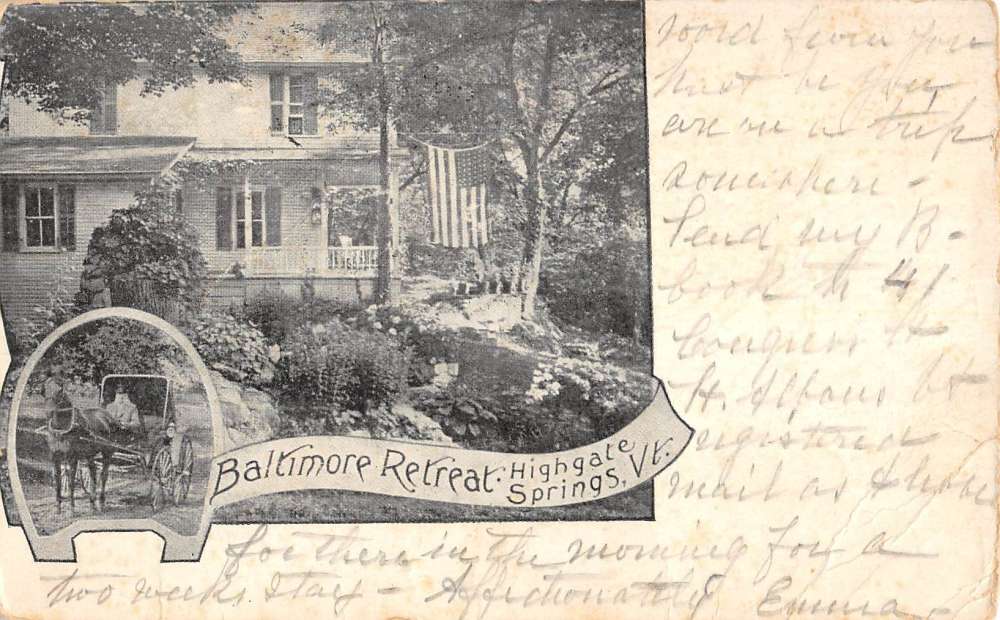 word from you
must be you
are on a trip
somewhere -
Send my B-
book to 41
Congress St
St. Albans Vt
registered
mail as I leave
Baltimore Retreat. Highgate
Springs, Vt.
for there in the morning for a
two weeks stay - Affectionately, Emma -